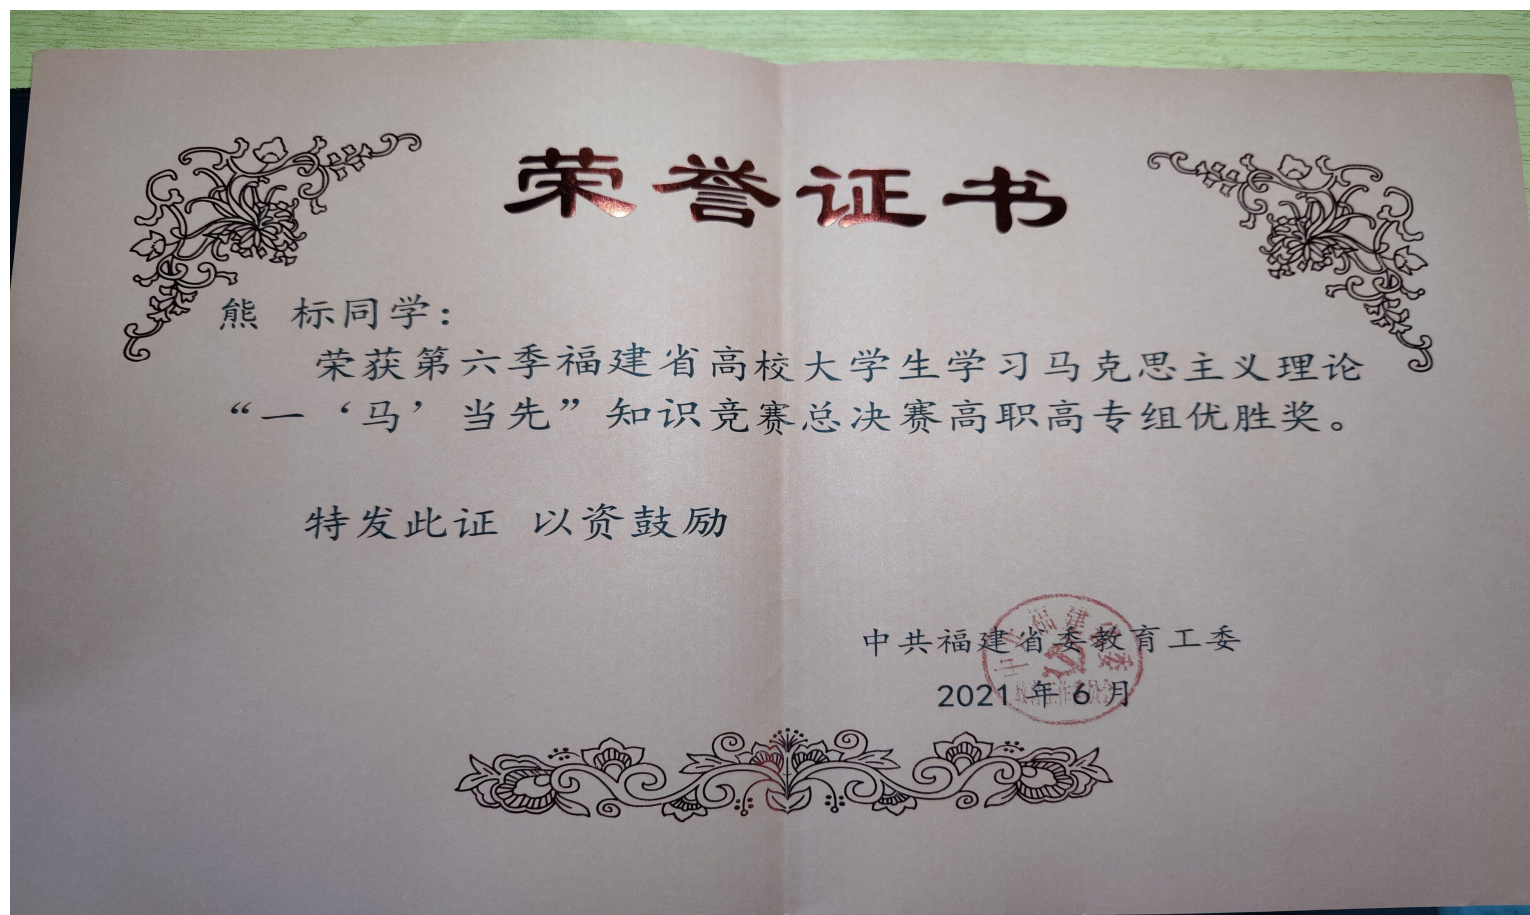 荣誉证书
熊 标同学:
荣获第六季福建省高校大学生学习马克思主义理论
“一‘马’当先”知识竞赛总决赛高职高专组优胜奖。
特发此证 以资鼓励
中共福建省委教育工委
2021 年 6 月
中共福建省委
教育工作委员会